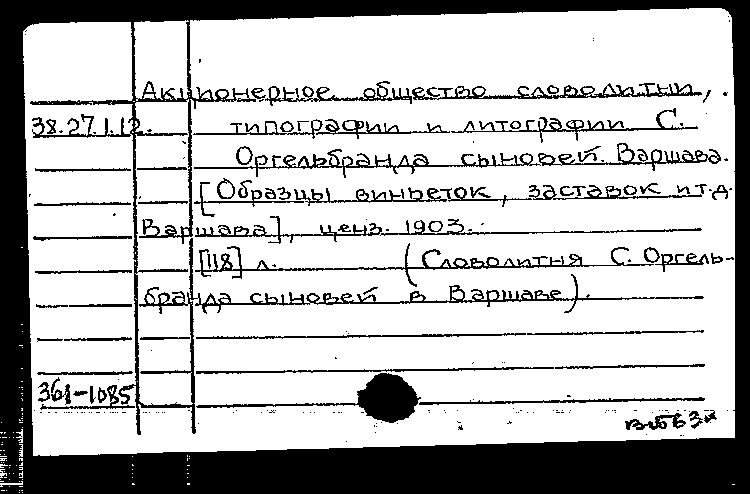 Акционерное общество словолитни,
38.27.1.12. типографии и литографии С.
Оргельбранда сыновей. Варшава.
[Образцы виньеток, заставок и т.д.
Варшава], ценз. 1903.
[118] л. (Словолитня С. Оргель-
бранда сыновей в Варшаве).
361-1085